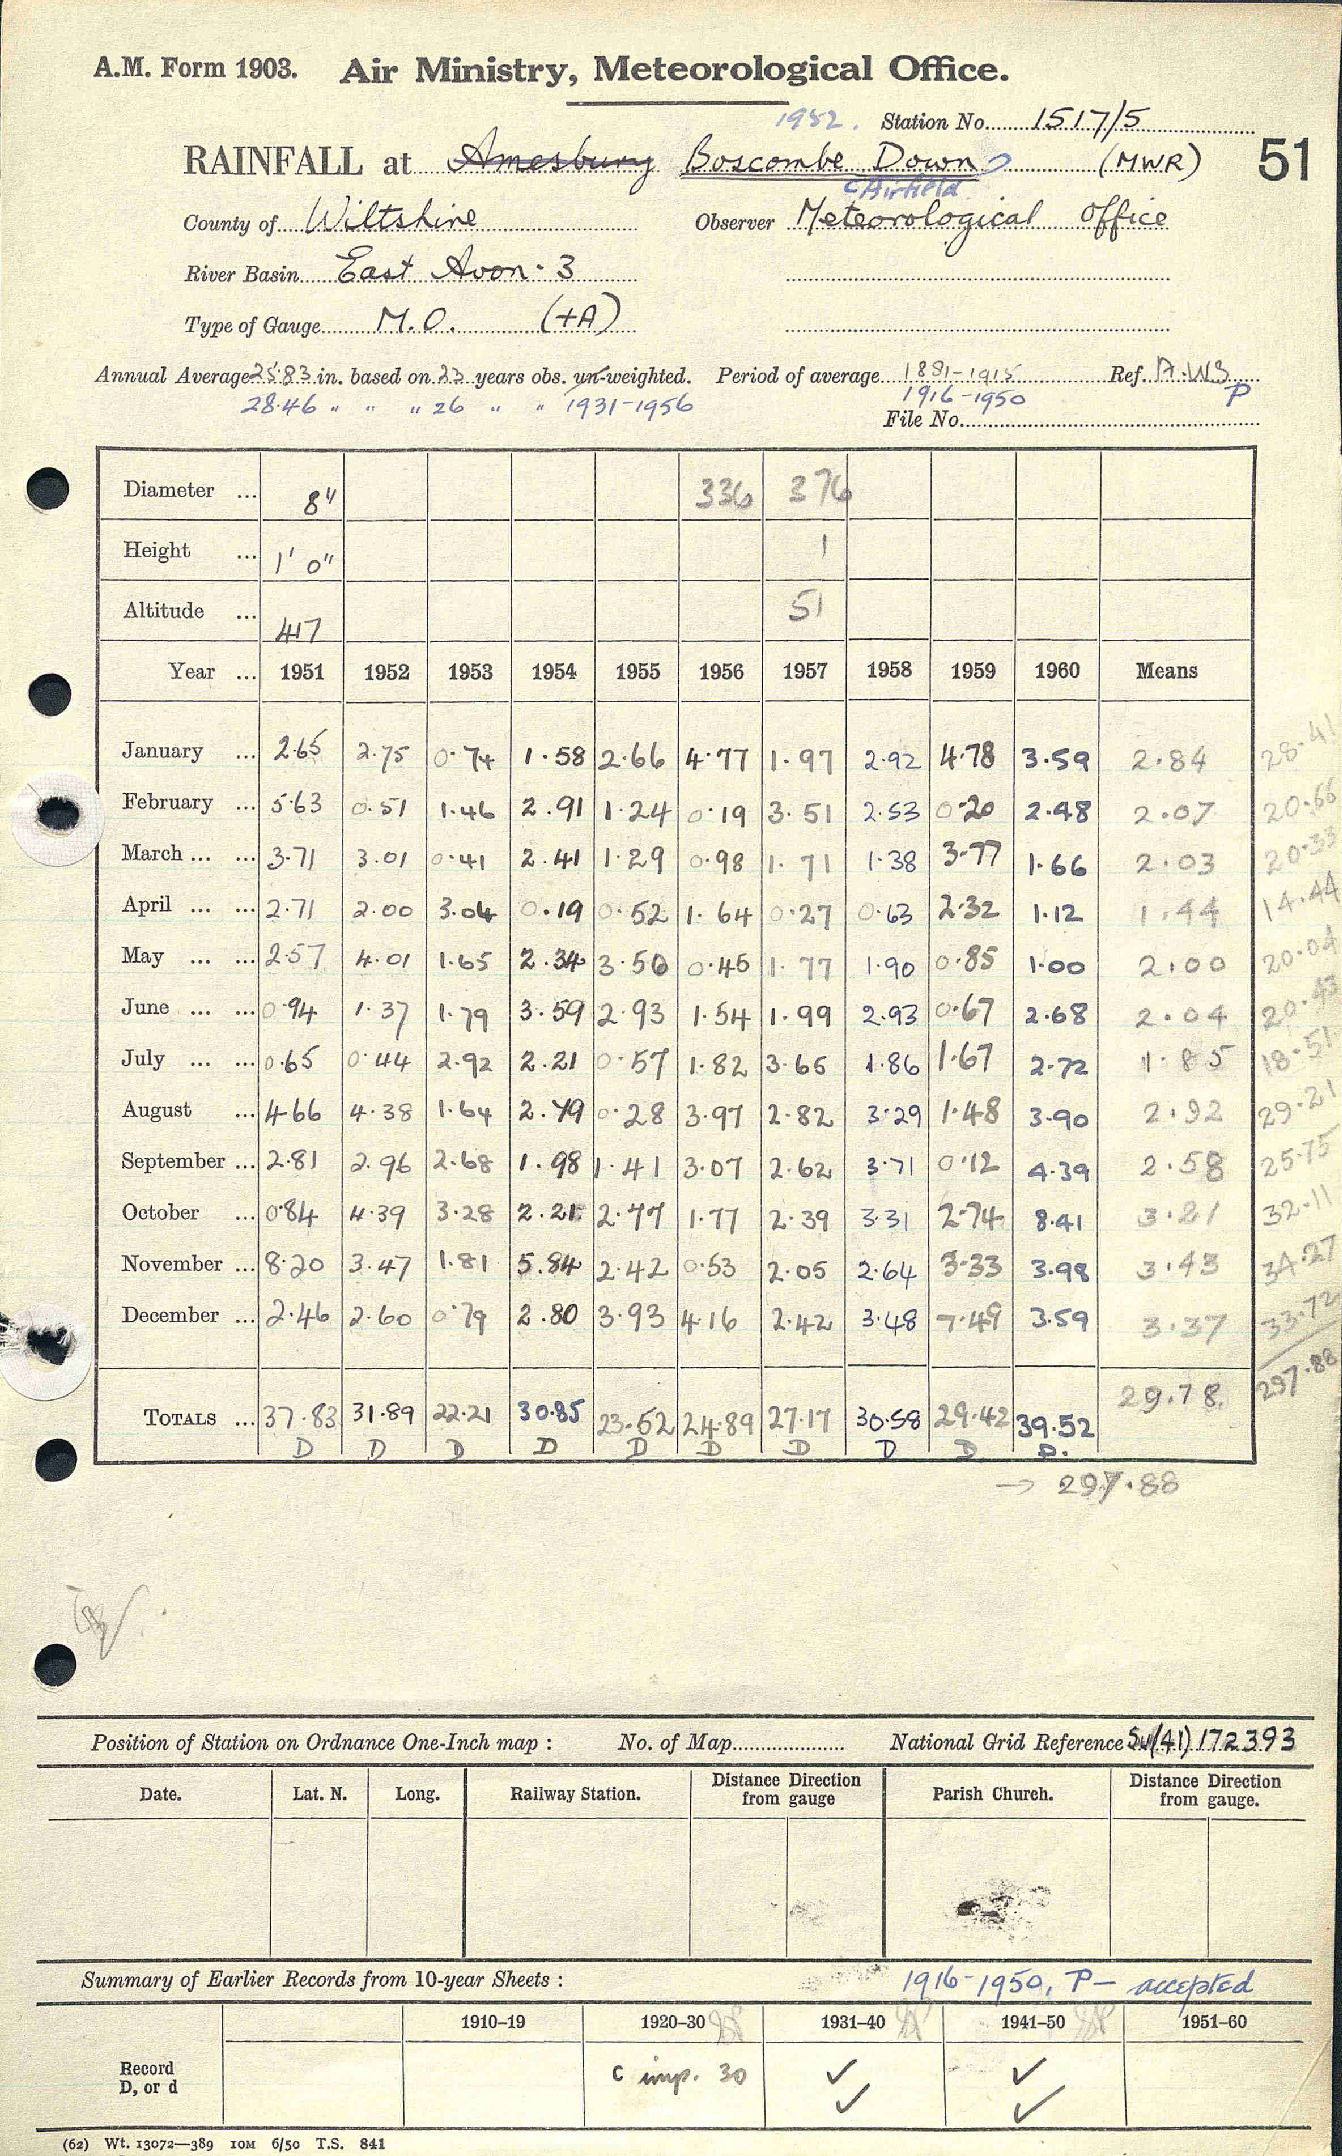 A.M. Form 1903. Air Ministry, Meteorological Office.
1952. Station No. 1517/5
RAINFALL at Amesbury Boscombe Down (MWR) 51
Airfield
County of Wiltshire Observer Meteorological Office
River Basin East Avon. 3
Type of Gauge M.O. (+A)
Annual Average 25.83 in. based on 23 years obs. un-weighted. Period of average 1881-1915 Ref. A.W3
28.46 " " " 26 " " 1931-1956 1916-1950 P
File No.
Diameter ... 8" 336 376
Height ... 1' 0" 1
Altitude ... 417 51
Year ... 1951 1952 1953 1954 1955 1956 1957 1958 1959 1960 Means
January ... 2.65 2.75 0.74 1.58 2.66 4.77 1.97 2.92 4.78 3.59 2.84 28.41
February ... 5.63 0.51 1.46 2.91 1.24 0.19 3.51 2.53 0.20 2.48 2.07 20.66
March ... ... 3.71 3.01 0.41 2.41 1.29 0.98 1.71 1.38 3.77 1.66 2.03 20.33
April ... ... 2.71 2.00 3.04 0.19 0.52 1.64 0.27 0.63 2.32 1.12 1.44 14.44
May ... ... 2.57 4.01 1.65 2.34 3.50 0.45 1.77 1.90 0.85 1.00 2.00 20.04
June ... ... 0.94 1.37 1.79 3.59 2.93 1.54 1.99 2.93 0.67 2.68 2.04 20.43
July ... ... 0.65 0.44 2.92 2.21 0.57 1.82 3.65 1.86 1.67 2.72 1.85 18.51
August ... 4.66 4.38 1.64 2.79 0.28 3.97 2.82 3.29 1.48 3.90 2.92 29.21
September ... 2.81 2.96 2.68 1.98 1.41 3.07 2.62 3.71 0.12 4.39 2.58 25.75
October ... 0.84 4.39 3.28 2.21 2.77 1.77 2.39 3.31 2.74 8.41 3.21 32.11
November ... 8.20 3.47 1.81 5.84 2.42 0.53 2.05 2.64 3.33 3.98 3.43 34.27
December ... 2.46 2.60 0.79 2.80 3.93 4.16 2.42 3.48 7.49 3.59 3.37 33.72
TOTALS ... 37.83 31.89 22.21 30.85 23.52 24.89 27.17 30.58 29.42 39.52 29.78. 297.88
D D D D D D D D D D.
→ 297.88
Position of Station on Ordnance One-Inch map : No. of Map National Grid Reference SU(41) 172393
Date. Lat. N. Long. Railway Station. Distance Direction from gauge Parish Church. Distance Direction from gauge.
Summary of Earlier Records from 10-year Sheets : 1916-1950, P- accepted
1910-19 1920-30 1931-40 1941-50 1951-60
Record D, or d C imp. 30 ✓ ✓
✓ ✓
(62) Wt. 13072—389 10M 6/50 T.S. 841